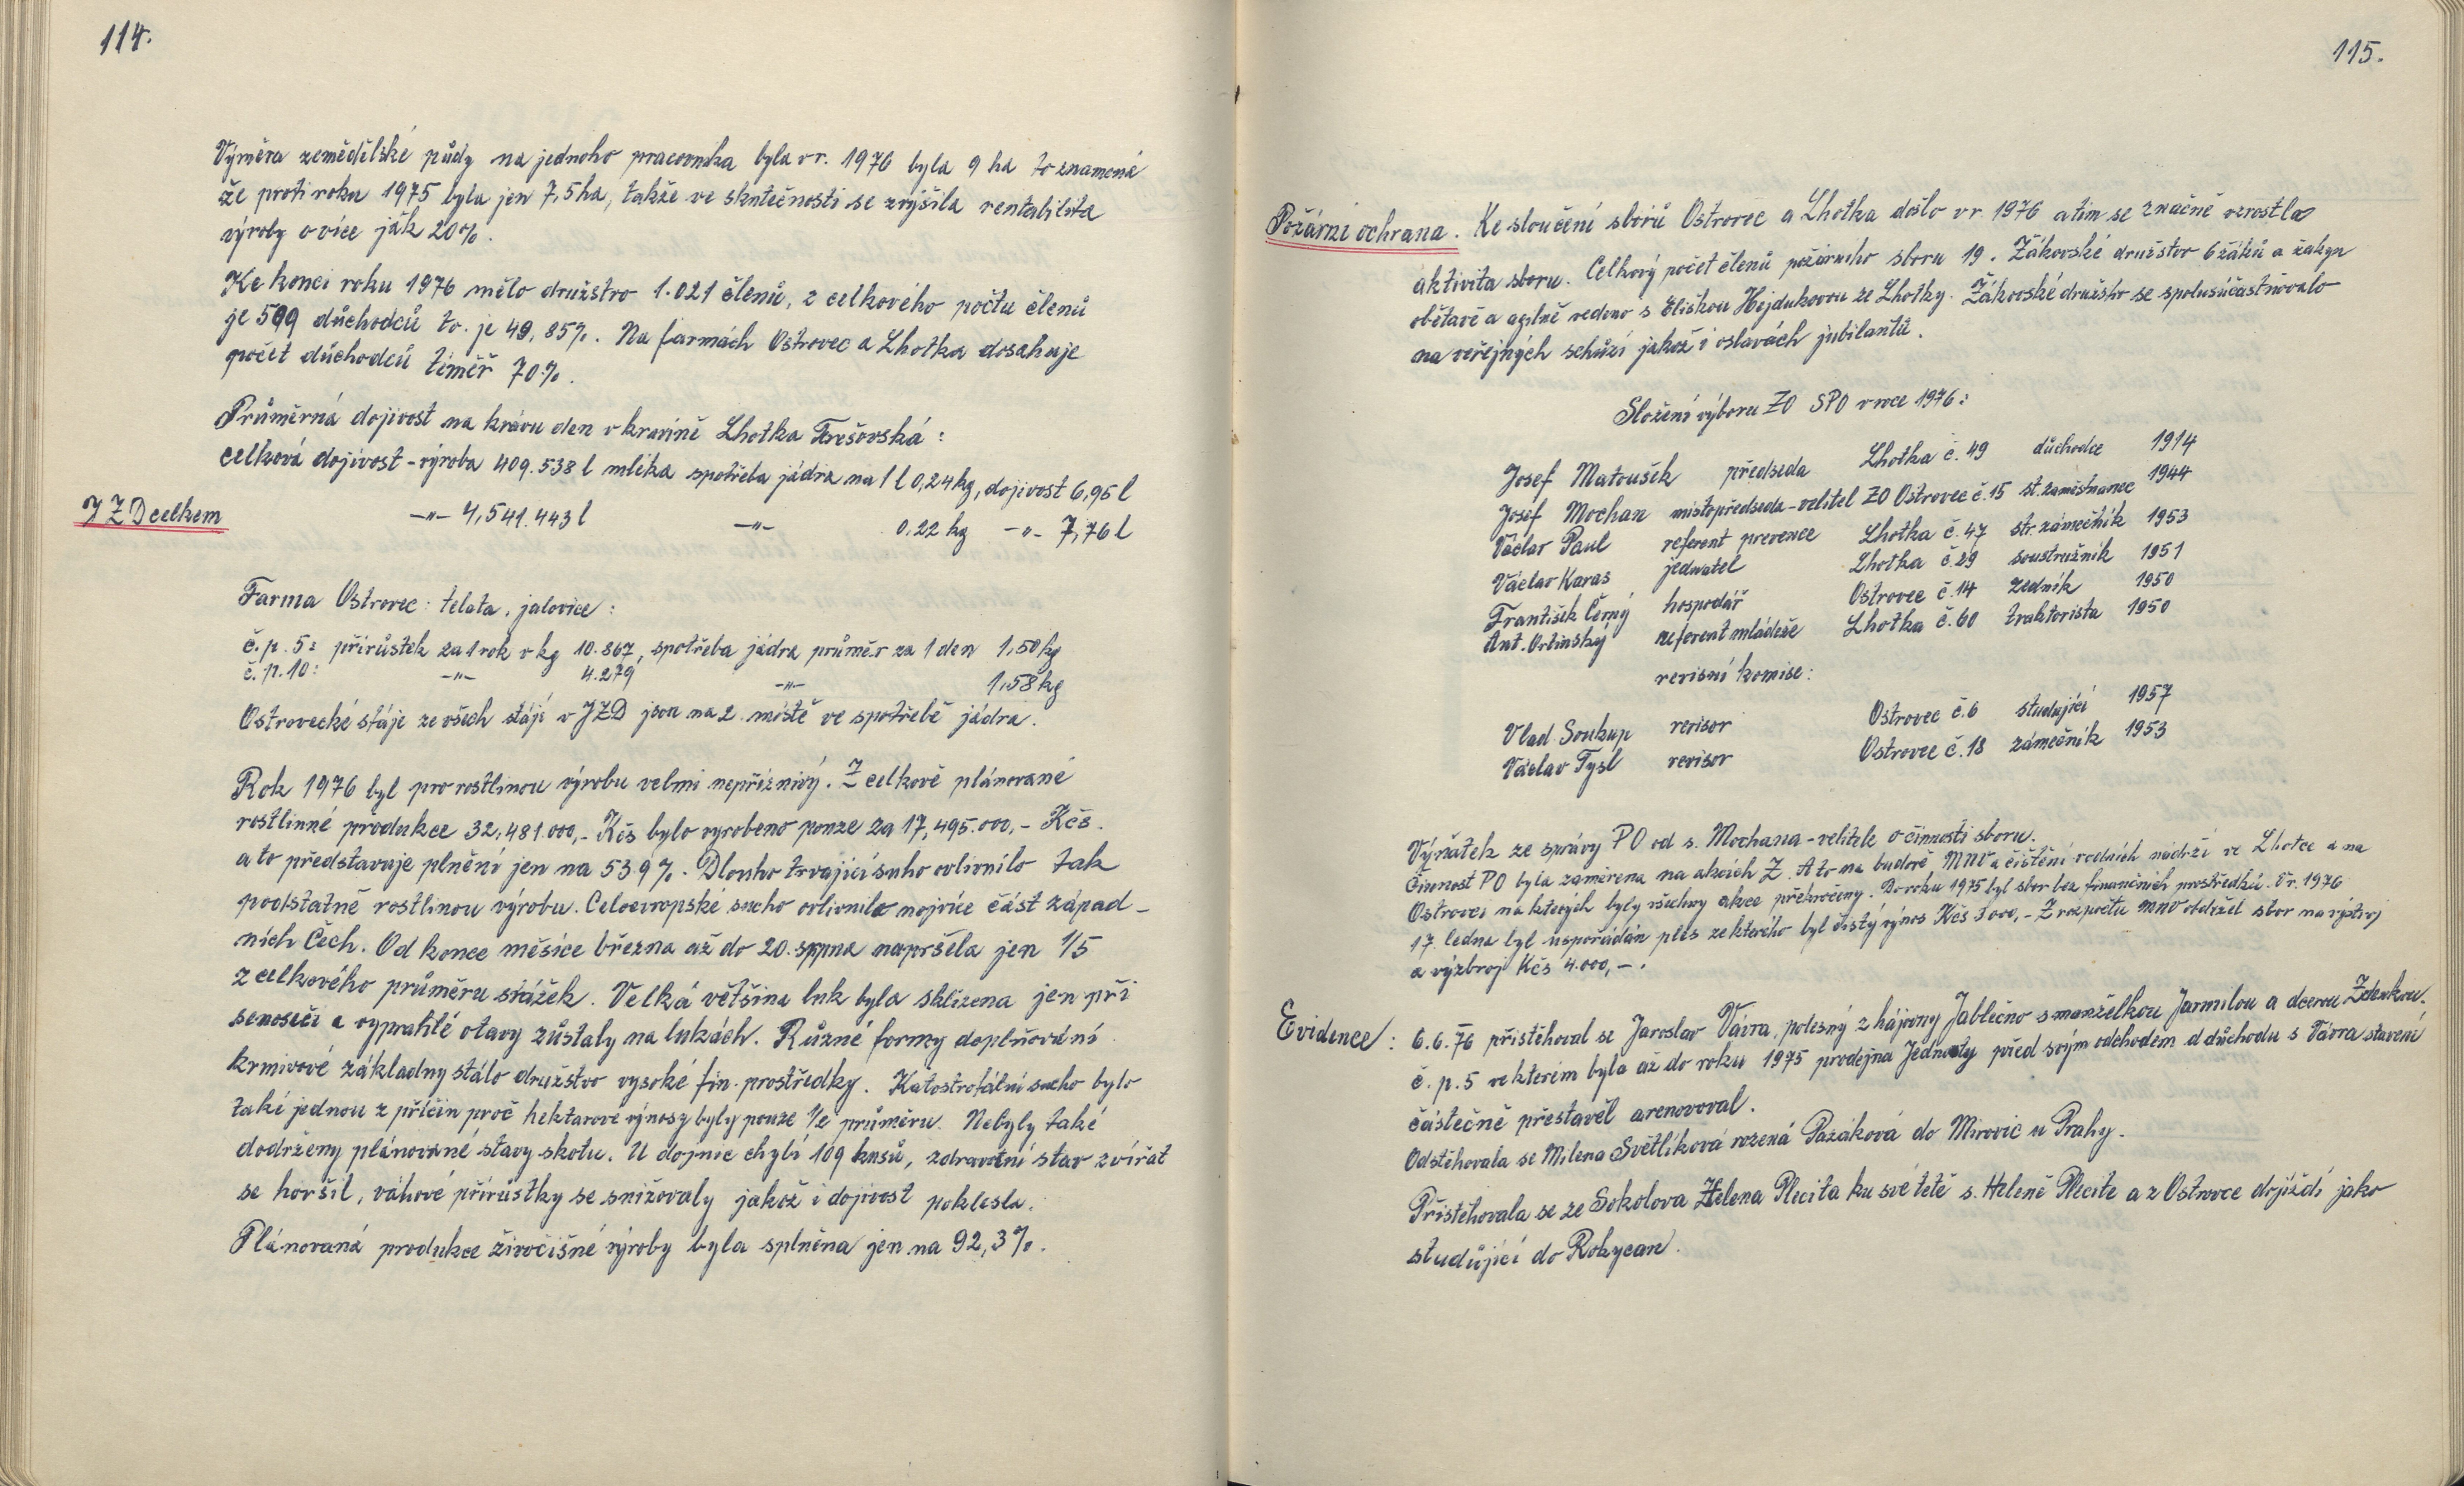 114.
Výměra zemědělské půdy na jednoho pracovníka byla v r. 1976 byla 9 ha to znamená
že proti roku 1975 byla jen 7,5 ha, takže ve skutečnosti se zvýšila rentabilita
výroby o více jak 20%.
Ke konci roku 1976 mělo družstvo 1.021 členů, z celkového počtu členů
je 509 důchodců to. je 49,85%. Na farmách Ostrovec a Lhotka dosahuje
počet důchodců téměř 70%.
Průměrná dojivost na krávu den v kravíně Lhotka Terešovská:
celková dojivost - výroba 409.538 l mléka spotřeba jádra na 1 l 0,24 kg, dojivost 6,95 l
JZD celkem -"- 4,541.443 l -"- 0,22 kg -"- 7,76 l
Farma Ostrovec: telata, jalovice:
č.p. 5: přírůstek za 1 rok v kg 10.867, spotřeba jádra průměr za 1 den 1,50 kg
č.p. 10: -"- 4.279 -"- 1,58 kg
Ostrovecké stáje ze všech stájí v JZD jsou na 2. místě ve spotřebě jádra.
Rok 1976 byl pro rostlinou výrobu velmi nepříznivý. Z celkově plánované
rostlinné produkce 32,481.000,- Kčs bylo vyrobeno pouze za 17,495.000,- Kčs.
a to představuje plnění jen na 53.9%. Dlouho trvající sucho ovlivnilo tak
podstatně rostlinou výrobu. Celoevropské sucho ovlivnilo nejvíce část západ-
ních Čech. Od konce měsíce března až do 20. srpna napršela jen 1/5
z celkového průměru srážek. Velká většina luk byla sklizena jen při
senoseči a vyprahlé otavy zůstaly na lukách. Různé formy doplňování
krmivové základny stálo družstvo vysoké fin. prostředky. Katostrofální sucho bylo
také jednou z příčin proč hektarové výnosy byly pouze 1/2 průměru. Nebyly také
dodrženy plánované stavy skotu. U dojnic chybí 109 kusů, zdravotní stav zvířat
se horšil, váhové přírůstky se snižovaly jakož i dojivost poklesla.
Plánovaná produkce živočišné výroby byla splněna jen na 92,3%.
115.
Požární ochrana. Ke sloučení sborů Ostrovec a Lhotka došlo v r. 1976 a tím se značně vzrostla
aktivita sboru. Celkový počet členů požárního sboru 19. Žákovské družstvo 6 žáků a žakyn
obětavě a aplně vedeno s Eliškou Hejdukovou ze Lhotky. Žákovské družstvo se spolusúčastňovalo
na veřejných schůzí jakož i oslavách jubilantů.
Složení výboru ZO SPO v roce 1976:
Josef Matoušek předseda Lhotka č. 49 důchodce 1914
Josef Mochan místopředseda - velitel ZO Ostrovec č. 15 st. zaměstnanec 1944
Václav Paul referent prevence Lhotka č. 47 str. zámečník 1953
Václav Karas jednatel Lhotka č. 29 soustružník 1951
František Černý hospodář Ostrovec č. 14 zedník 1950
Ant. Ortinský referent mládeže Lhotka č. 60 traktorista 1950
revisní komise:
Vlad. Soukup revisor Ostrovec č. 6 studující 1957
Václav Tysl revisor Ostrovec č. 18 zámečník 1953
Výňatek ze správy PO od s. Mochana - velitele o činnosti sboru.
Činnost PO byla zaměrena na akcích Z. A to na budově MNV a čištění vodních nádrží ve Lhotce a na
Ostrovci na kterých byly všechny akce překročeny. Do roku 1975 byl sbor bez finančních prostředků. V r. 1976
17. ledna byl uspořádán ples ze kterého byl čistý výnos Kčs 3000,- Z rozpočtu MNV obdržel sbor na výstroj
a výzbroj Kčs 4.000,-.
Evidence: 6.6.76 přistěhoval se Jaroslav Vávra, polesný z hájovny Jablečno s manželkou Jarmilou a dcerou Zdenkou.
č.p. 5 ve kterém byla až do roku 1975 prodejna Jednoty před svým odchodem d důchodu s Vávra stavení
částečně přestavěl a renovoval.
Odstěhovala se Milena Světlíková rozená Pazáková do Mirovic u Prahy.
Přistěhovala se ze Sokolova Helena Plecita ku své tetě s. Heleně Plecite a z Ostrovce dojíždí jako
studůjící do Rokycan.